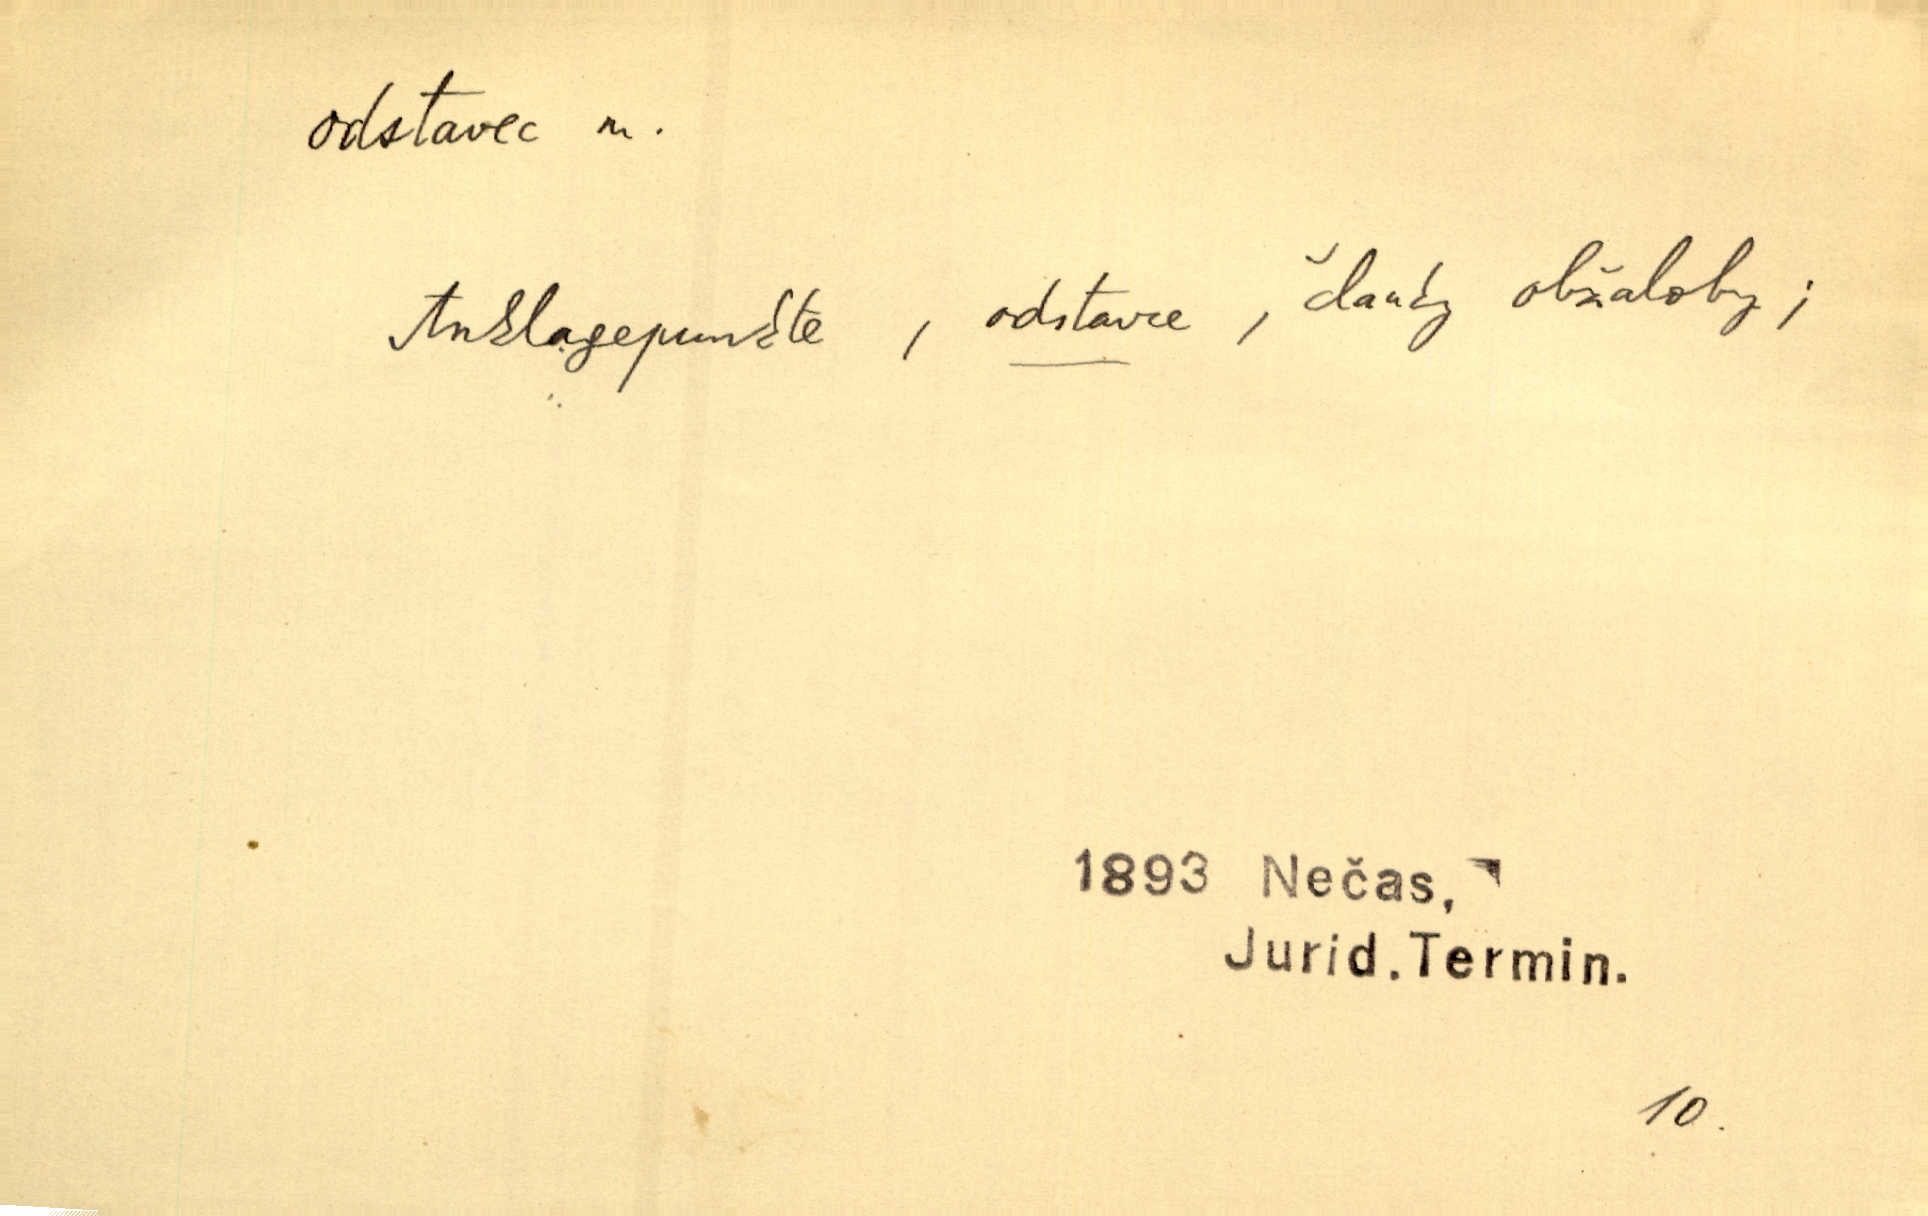 odstavec m.
Anklagepunkte, odstavce, články obžaloby;
1893 Nečas,
Jurid. Termin.
10.